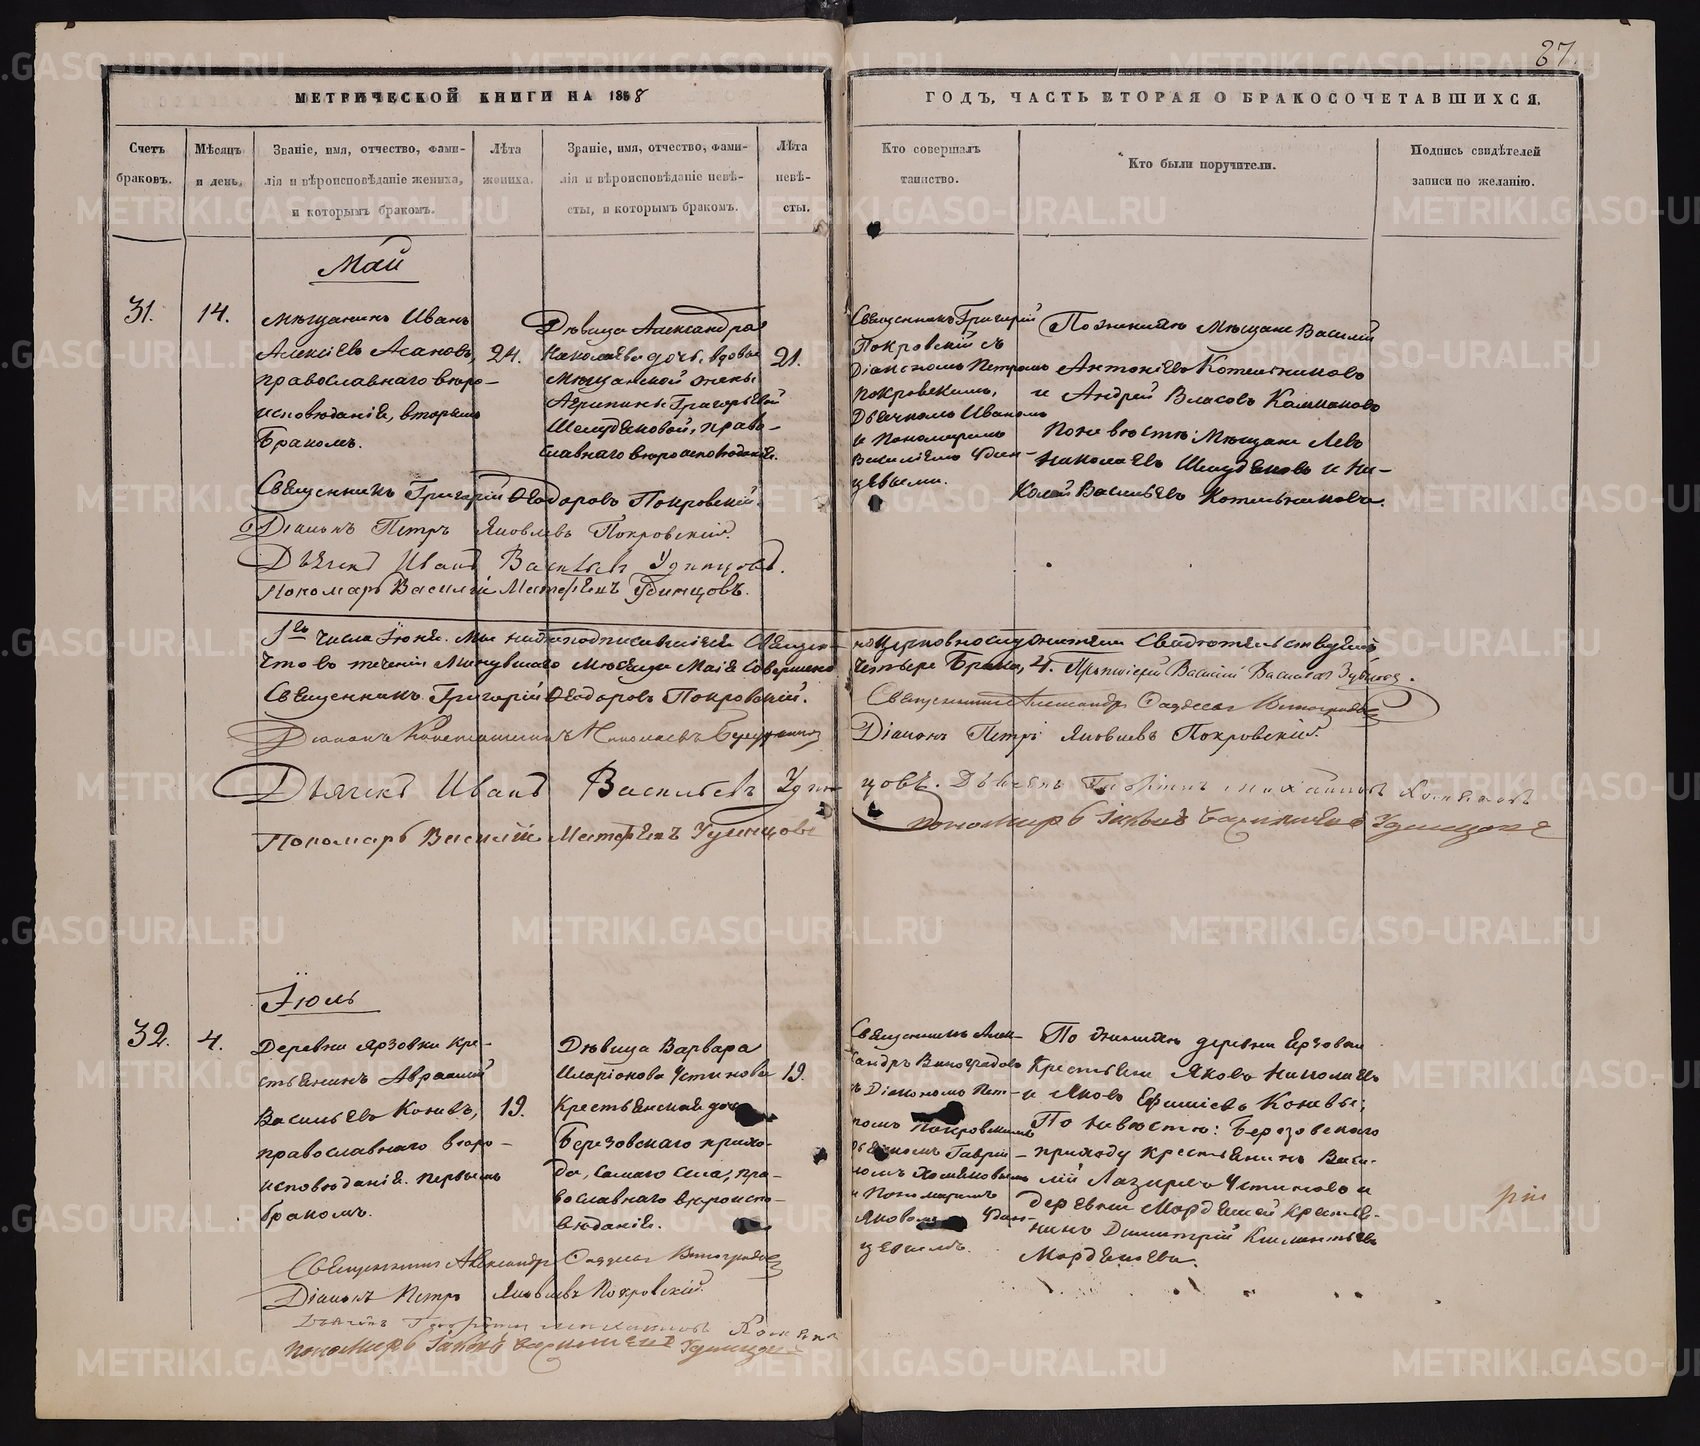 87.
МЕТРИЧЕСКОЙ КНИГИ НА 1868
ГОДЪ, ЧАСТЬ ВТОРАЯ О БРАКОСОЧЕТАВШИХСЯ.
Счетъ браковъ.
Мѣсяцъ и день.
Званіе, имя, отчество, фами-
лія и вѣроисповѣданіе жениха,
и которымъ бракомъ.
Лѣта
жениха.
Званіе, имя, отчество, фами-
лія и вѣроисповѣданіе невѣ-
сты, и которымъ бракомъ.
Лѣта
невѣ-
сты.
Кто совершалъ
таинство.
Кто были поручители.
Подпись свидѣтелей
записи по желанію.
Май
31.
14.
Мѣщанинъ Иванъ
Алексіевъ
православнаго вѣро-
исповѣданія, вторымъ
бракомъ.
24.
Дѣвица Александра
Николаева дочь, вдовы
Мѣщанской жены
Агрипины Григорьевой
право-
славнаго вѣроисповѣданія.
21.
Священникъ Григорій
Покровскій съ
Діакономъ Петромъ
Покровскимъ,
Дьячкомъ Иваномъ
и Пономаремъ
Василіемъ Удин-
цевыми.
По женихѣ Мѣщане Василій
Антоніевъ Котельниковъ
и Андрей Власовъ
По невѣстѣ: Мѣщане Левъ
Николаевъ и Ни-
колай Васильевъ Котельниковъ.
Священникъ Григорій Ѳеодоровъ Покровскій.
Діаконъ Петръ Яковлевъ Покровскій.
Дьячекъ Иванъ Васильевъ Удинцовъ.
Пономарь Василій Матфеевъ Удинцовъ.
1го числа Іюня. Мы нижеподписавшіеся Священно
церковнослужители свидѣтельствуемъ
что въ теченіи минувшаго мѣсяца Маія совершено
четыре брака, 4. Протоіерей Василій Васильевъ
Священникъ Григорій Ѳеодоровъ Покровскій.
Священникъ Александръ Виноградовъ
Діаконъ Николаевъ
Діаконъ Петръ Яковлевъ Покровскій.
Дьячекъ Иванъ Васильевъ Удин-
цовъ. Дьячекъ
Пономарь Василій Матфеевъ Удинцовъ
Пономарь Удинцовъ
Іюль
32.
4.
Деревни Ярзовки Кре-
стьянинъ Авраамій
Васильевъ Коневъ,
православнаго вѣро-
исповѣданія. первымъ
бракомъ.
19.
Дѣвица Варвара
Иларіонова Устинова
Крестьянская дочь
Березовскаго прихо-
да, самаго села, пра-
вославнаго вѣроиспо-
вѣданія.
19.
Священникъ Алек-
сандръ Виноградовъ
съ Діакономъ Пет-
ромъ Покровскимъ
Дьячкомъ Гаврии-
ломъ Хомяковымъ
и Пономаремъ
Яковомъ Удин-
цевымъ.
По женихѣ деревни Ерзовки
Крестьяне Яковъ Николаевъ
и Яковъ Ефимовъ Коневы;
По невѣстѣ: Березовскаго
приходу крестьянинъ Васи-
лій Лазаревъ Устиновъ и
деревни крестья-
нинъ Димитрій Климентьевъ
Священникъ Александръ Виноградовъ
Діаконъ Петръ Яковлевъ Покровскій.
Дьячекъ
Пономарь Удинцовъ
METRIKI.GASO-URAL.RU